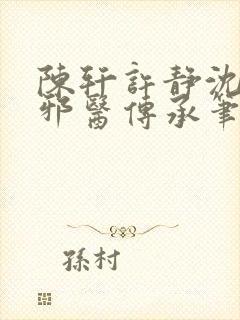 陳軒許靜沈
邪醫傳承筆
孫村